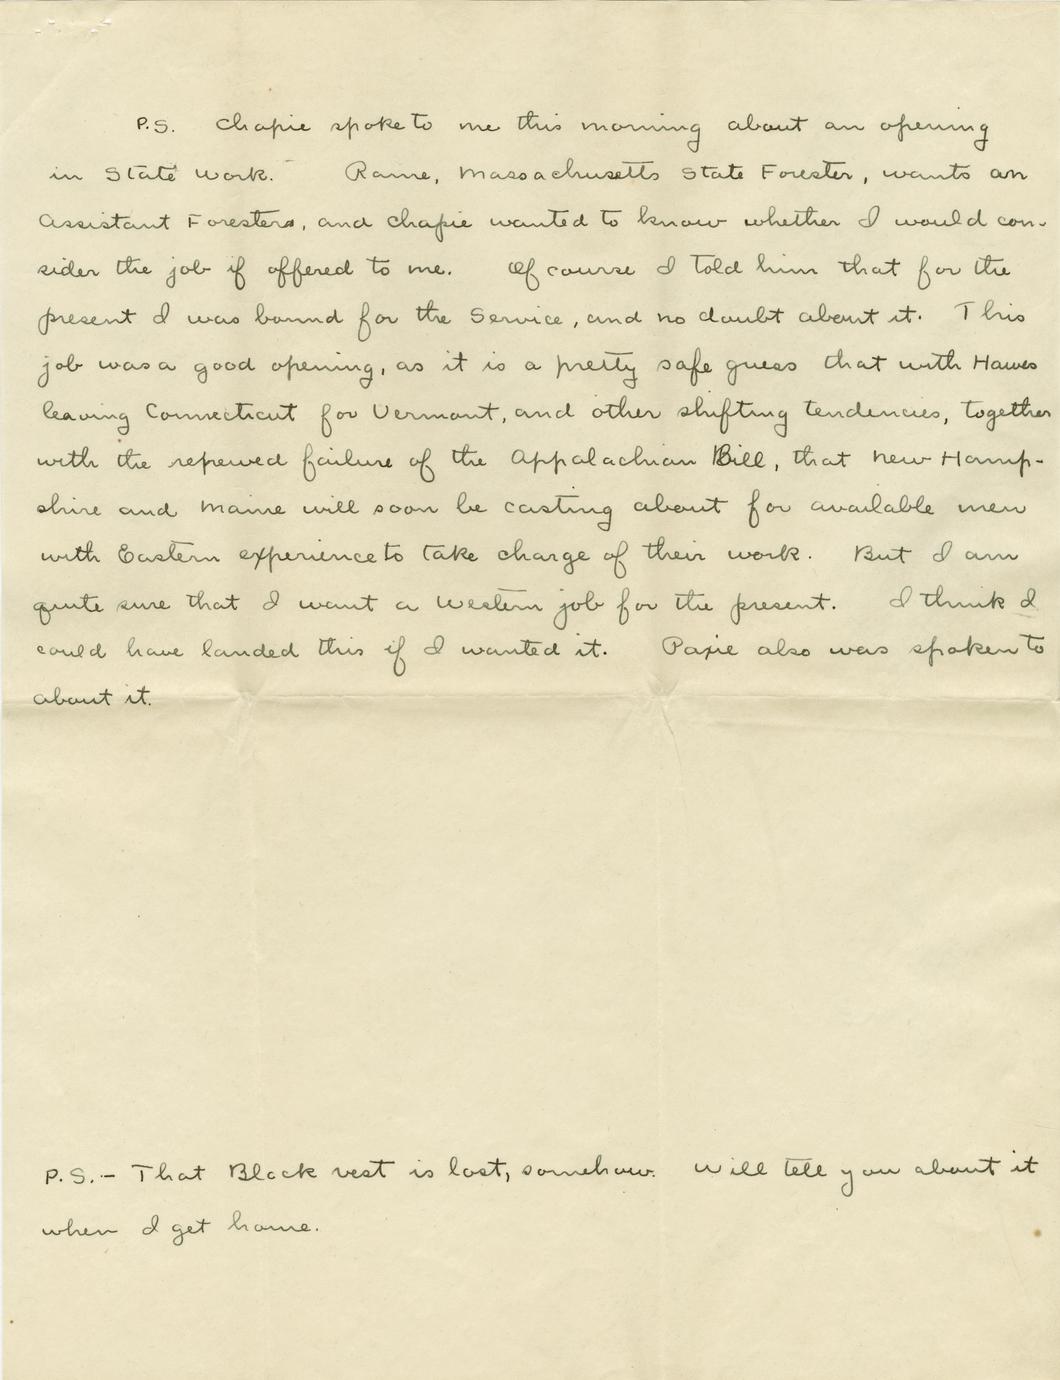 P.S. Chapie spoke to me this morning about an opening
in State work. Rane, Massachusetts State Forester, wants an
Assistant Foresters, and Chapie wanted to know whether I would con-
sider the job if offered to me. Of course I told him that for the
present I was bound for the Service, and no doubt about it. This
job was a good opening, as it is a pretty safe guess that with Hawes
leaving Connecticut for Vermont, and other shifting tendencies, together
with the renewed failure of the Appalachian Bill, that New Hamp-
shire and Maine will soon be casting about for available men
with Eastern experience to take charge of their work. But I am
quite sure that I want a Western job for the present. I think I
could have landed this if I wanted it. Paxie also was spoken to
about it.
P.S.- That Black vest is lost, somehow. Will tell you about it
when I get home.